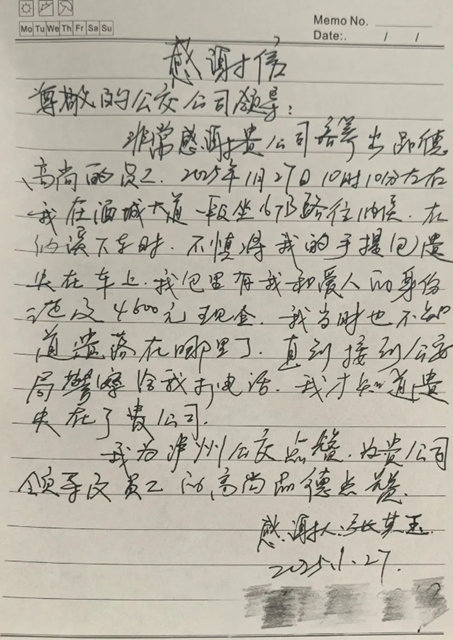 Mo Tu We Th Fr Sa Su
Memo No.
Date:. / /
感谢信
尊敬的公交公司领导:
非常感谢贵公司培养出品德
高尚的员工. 2025年1月27日10时10分左右
我在酒城大道一段坐167B路往 在
下车时. 不慎将我的手提包遗
失在车上. 我包里有我和爱人的身份
证及4600元现金. 我当时也不知
道遗落在哪里了. 直到接到公安
局警察给我打电话. 我才知道遗
失在了贵公司.
我为泸州公交点赞. 为贵公司
领导及员工的高尚品德点赞.
感谢人: 张其玉
2025.1.27.